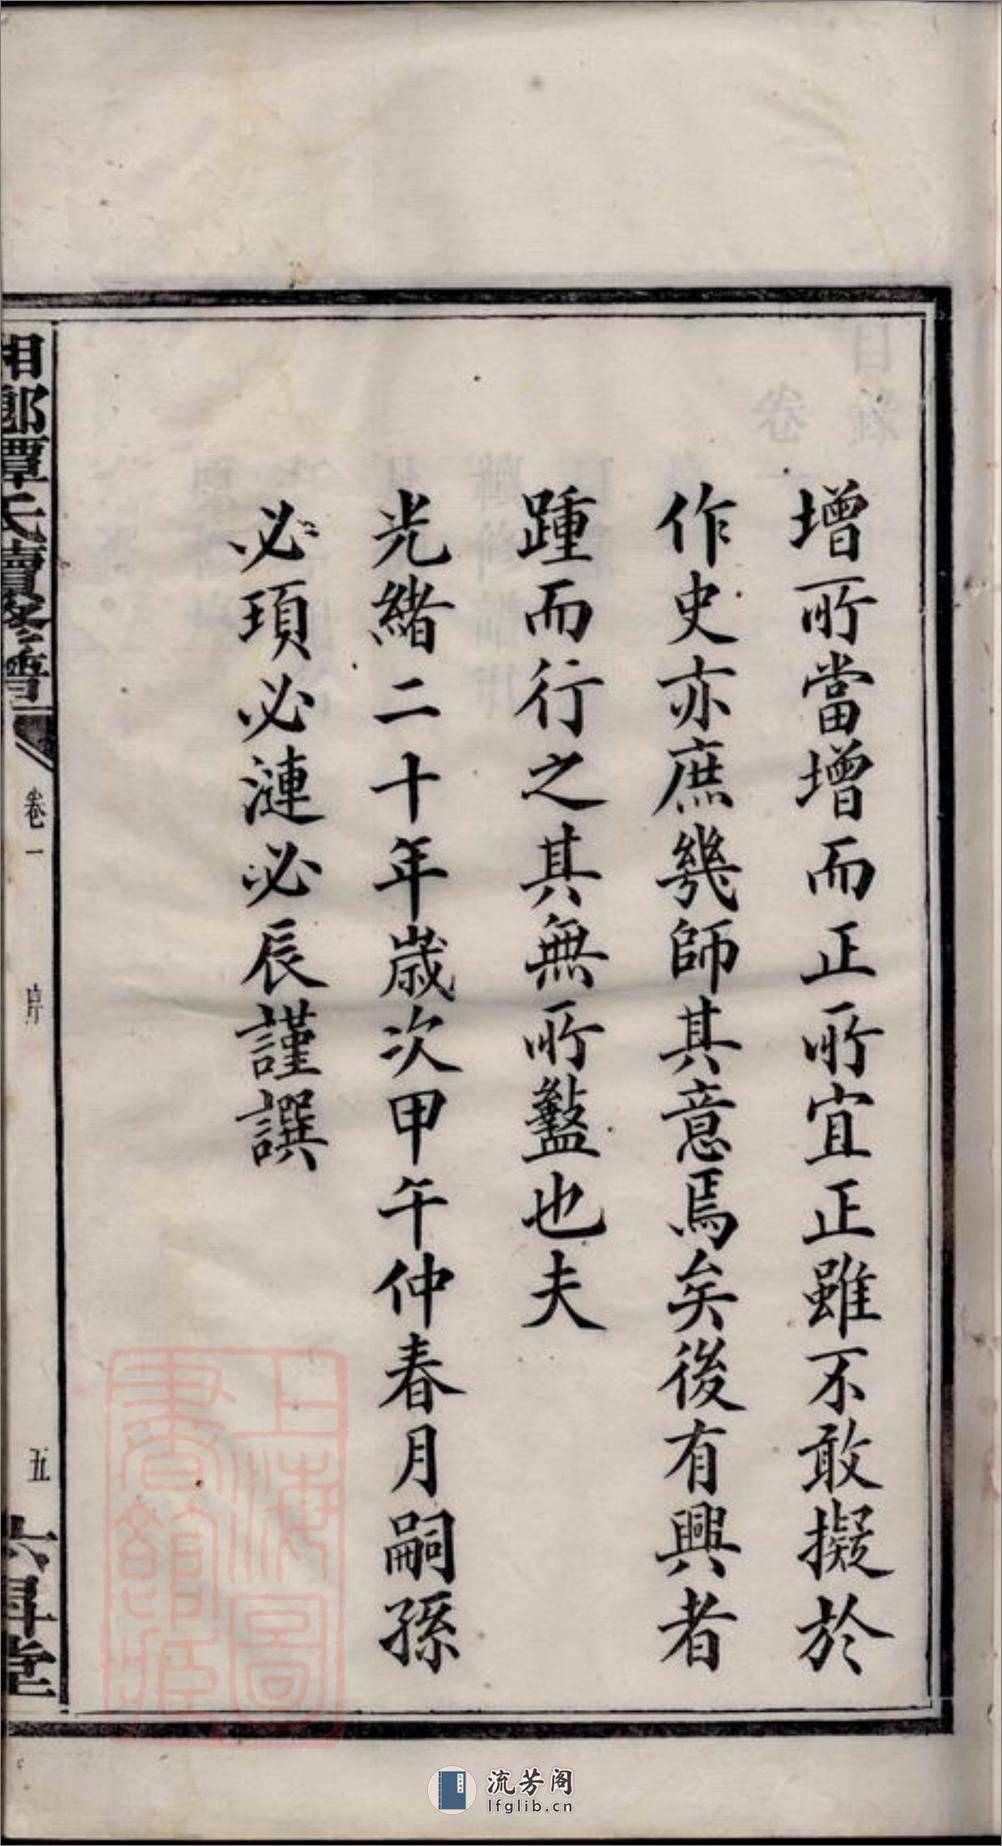 增所當增而正所宜正雖不敢擬於
作史亦庶幾師其意焉矣後有興者
踵而行之其無所盭也夫
光緒二十年歲次甲午仲春月嗣孫
必頊必漣必辰謹譔
湘鄉譚氏續修譜
卷一
序
五
上海圖
書館藏
流芳阁
lfglib.cn